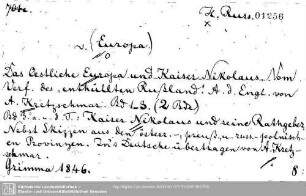 H. Russ. 01256
x
v. (Europa)
Das Oestliche Europa und Kaiser Nikolaus. Vom
Verf. des „enthüllten Rußland". A. d. Engl. von
A. Kretzschmar. Bd 1-3. (2 Bde)
Kaiser Nikolaus und seine Rathgeber
Nebst Skizzen aus den öster., preuß. u. russ.-polnisch
en Provinzen. Ins Deutsche übertragen von A. Kretz-
schmar.
Grimma 1846. 8